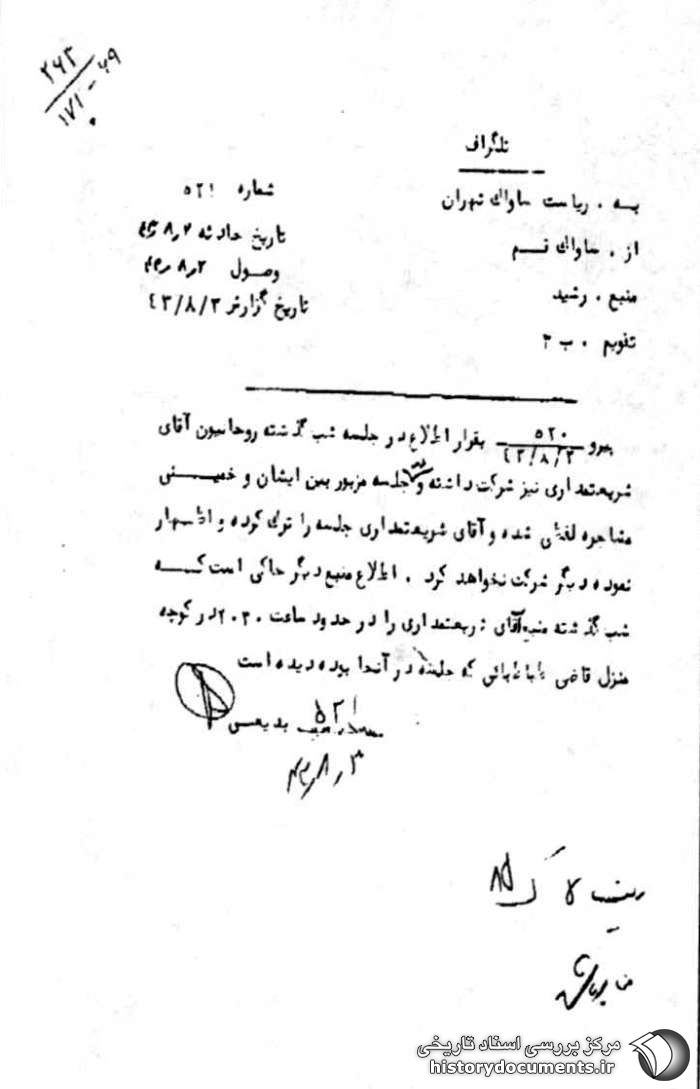 ۲۶۳
۱۷۱ - ۴۹
تلگراف
به . ریاست ساواك تهران
شماره ۵۲۱
از . ساواك قم
تاریخ حادثه ۴۳٫۸٫۲
منبع . رشید
وصول ۴۳٫۸٫۲
تقویم . ب ۳
تاریخ گزارش ۴۳/۸/۳
پیرو ۵۲۰ ۴۳/۸/۳ بقرار اطلاع در جلسه شب گذشته روحانیون آقای
شریعتمداری نیز شرکت داشته و جلسه مزبور بین ایشان و خمینی
مشاجره لفظی شده و آقای شریعتمداری جلسه را ترك کرده و اظهار
نموده دیگر شرکت نخواهد کرد . اطلاع منبع دیگر حاکی است که
شب گذشته منبع آقای شریعتمداری را در حدود ساعت ۲۰۳۰ در کوچه
منزل قاضی طباطبائی که جلسه در آنجا بوده دیده است
۵۲۱
بدیعی
۴۳٫۸٫۳
مرکز بررسی اسناد تاریخی
historydocuments.ir